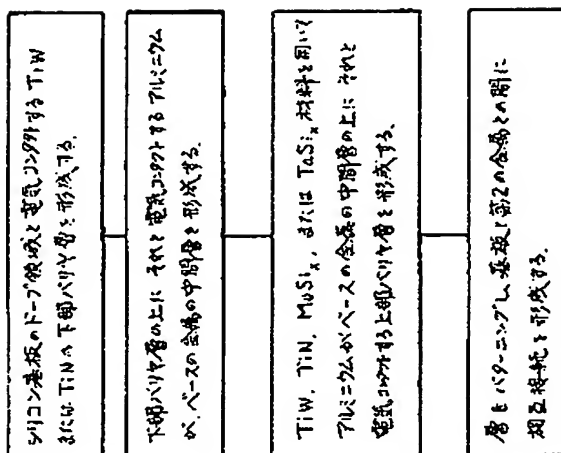 シリコン基板のドープ領域と電気コンタクトする TiW
または TiN の下部バリヤ層を形成する。
下部バリヤ層の上に それと電気コンタクトする アルミニウム
が、ベースの金属の中間層を形成する。
TiW, TiN, MoSiₓ, または TaSiₓ 材料を用いて
アルミニウムがベースの金属の中間層の上に それと
電気コンタクトする上部バリヤ層を形成する。
層をパターニングし、基板と第2の金属との間に
相互接続を形成する。